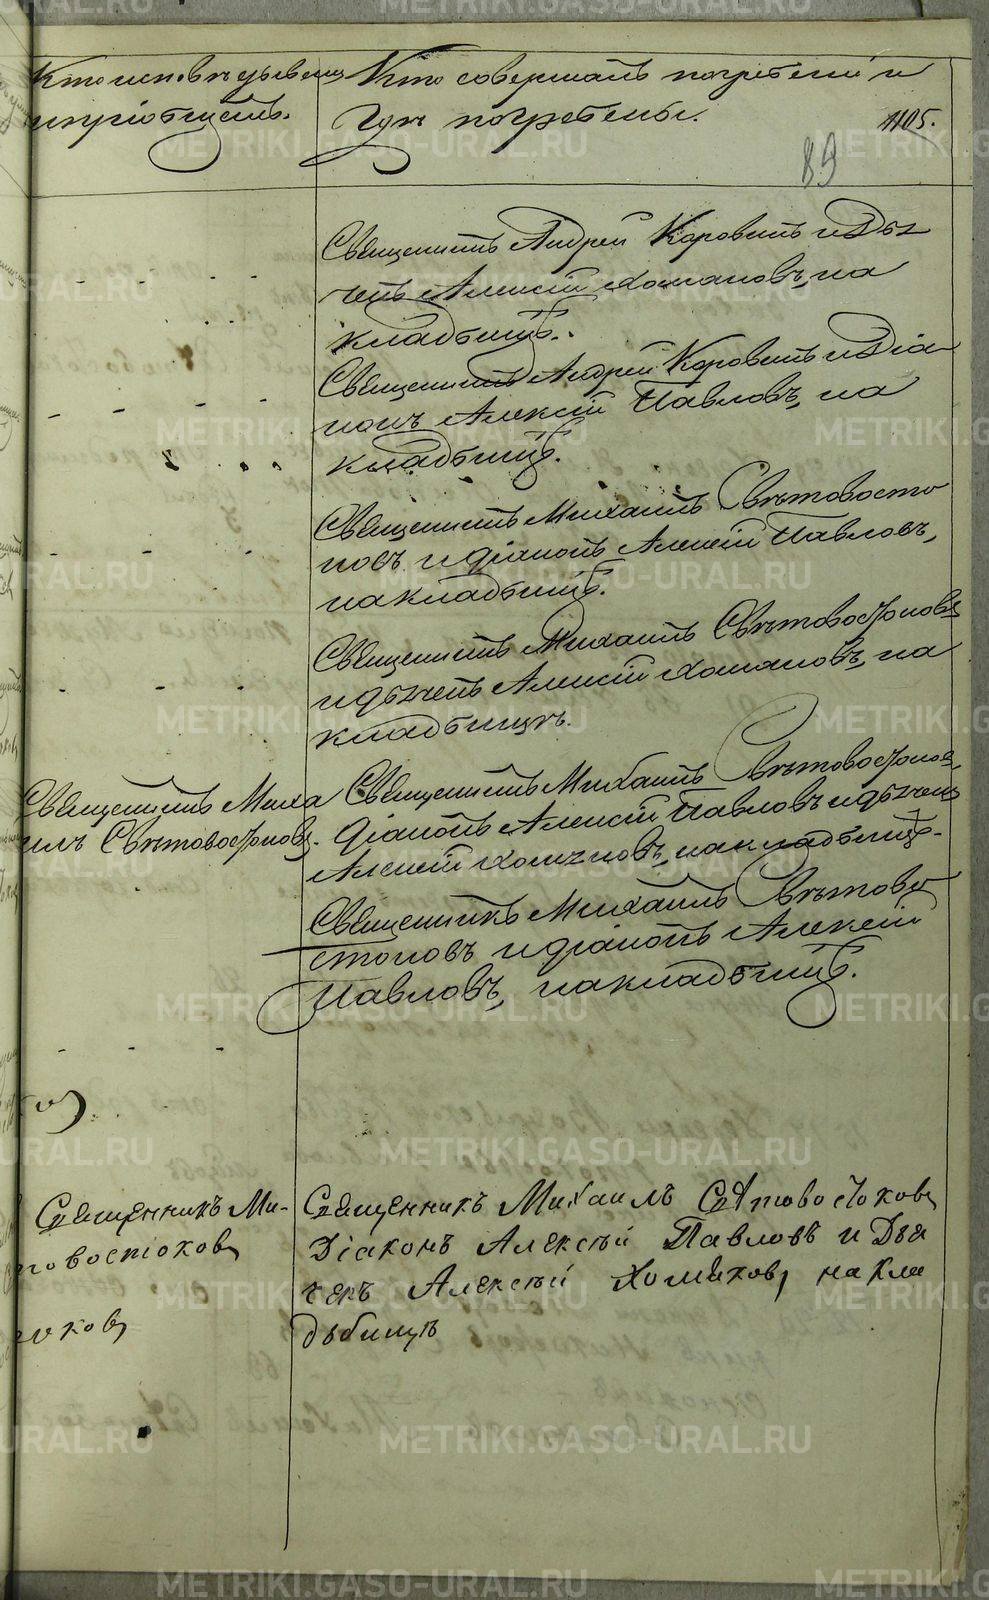 Кто исповѣдывалъ
и пріобщалъ.
Кто совершалъ погребеніе и
гдѣ погребены.
1105.
89
Священникъ Андрей Коровинъ и Дья
чекъ Алексій Хомяковъ, на
кладбищѣ.
Священникъ Андрей Коровинъ и Діа
конъ Алексій Павловъ, на
кладбищѣ.
Священникъ Михаилъ Свѣтовосто
ковъ и діаконъ Алексій Павловъ,
на кладбищѣ.
Священникъ Михаилъ Свѣтовостоковъ
и дьячекъ Алексій Хомяковъ, на
кладбищѣ.
Священникъ Миха
илъ Свѣтовостоковъ.
Священникъ Михаилъ Свѣтовостоковъ,
діаконъ Алексій Павловъ и дьячекъ
Алексій Хомяковъ, на кладбищѣ.
Священникъ Михаилъ Свѣтово
стоковъ и діаконъ Алексій
Павловъ, на кладбищѣ.
Священникъ Ми-
товостоковъ
токовъ
Священникъ Михаилъ Свѣтовостоковъ
Діаконъ Алексѣй Павловъ и Дья
чекъ Алексѣй Хомяковъ, на кла
дьбищѣ
METRIKI.GASO-URAL.RU